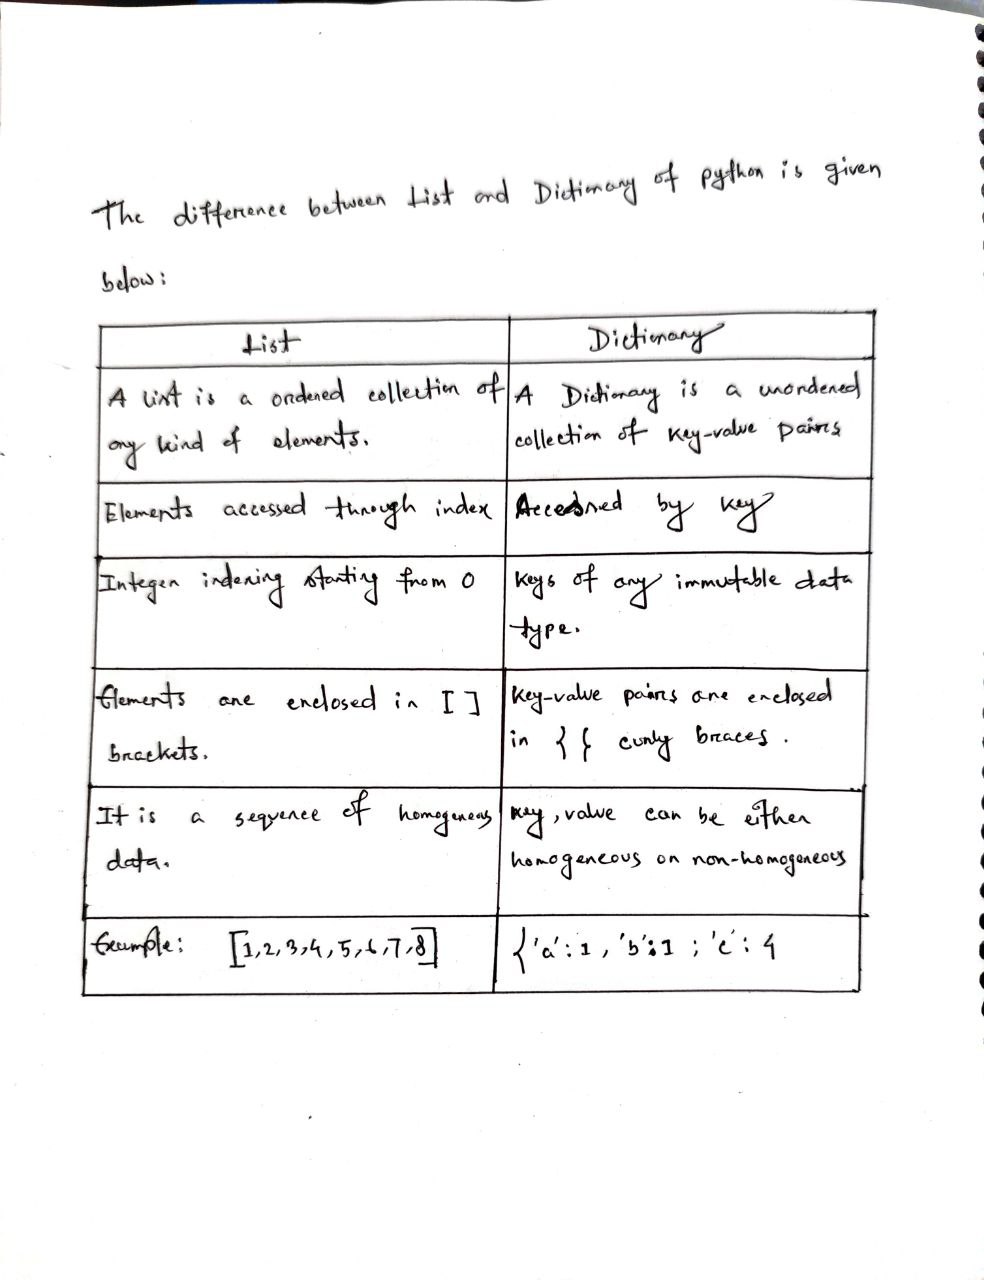 The difference between List and Dictionary of python is given
below:
List
Dictionary
A List is a ordered collection of
any kind of elements.
A Dictionary is a unordered
collection of key-value pairs
Elements accessed through index
Accessed by key
Integer indexing starting from 0
Keys of any immutable data
type.
Elements are enclosed in []
brackets.
Key-value pairs are enclosed
in {{ curly braces.
It is a sequence of homogeneous
data.
key, value can be either
homogeneous or non-homogeneous
Example: [1,2,3,4,5,6,7,8]
{'a':1, 'b':1 ; 'c': 4